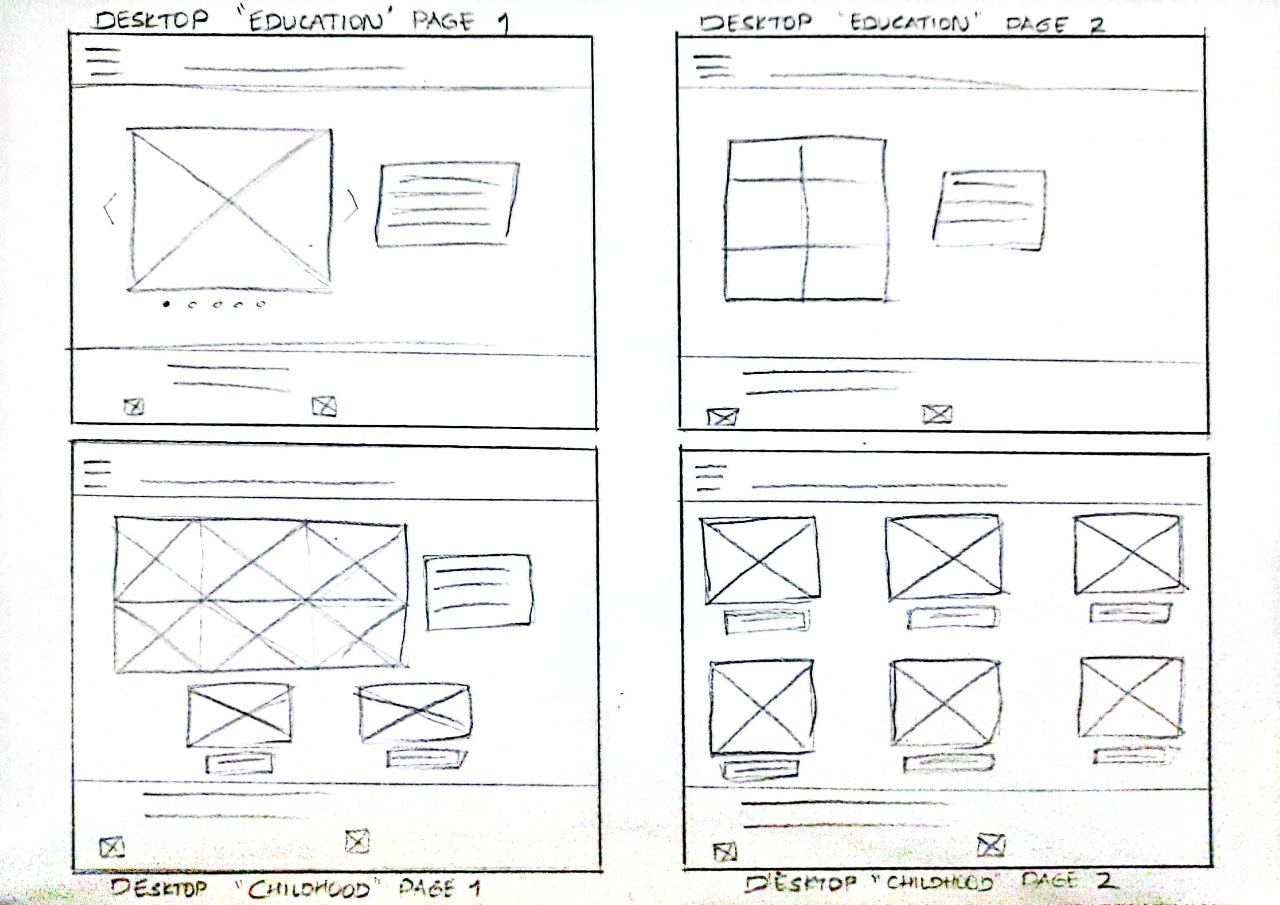 DESKTOP "EDUCATION" PAGE 1
DESKTOP "EDUCATION" PAGE 2
DESKTOP "CHILDHOOD" PAGE 1
DESKTOP "CHILDHOOD" PAGE 2